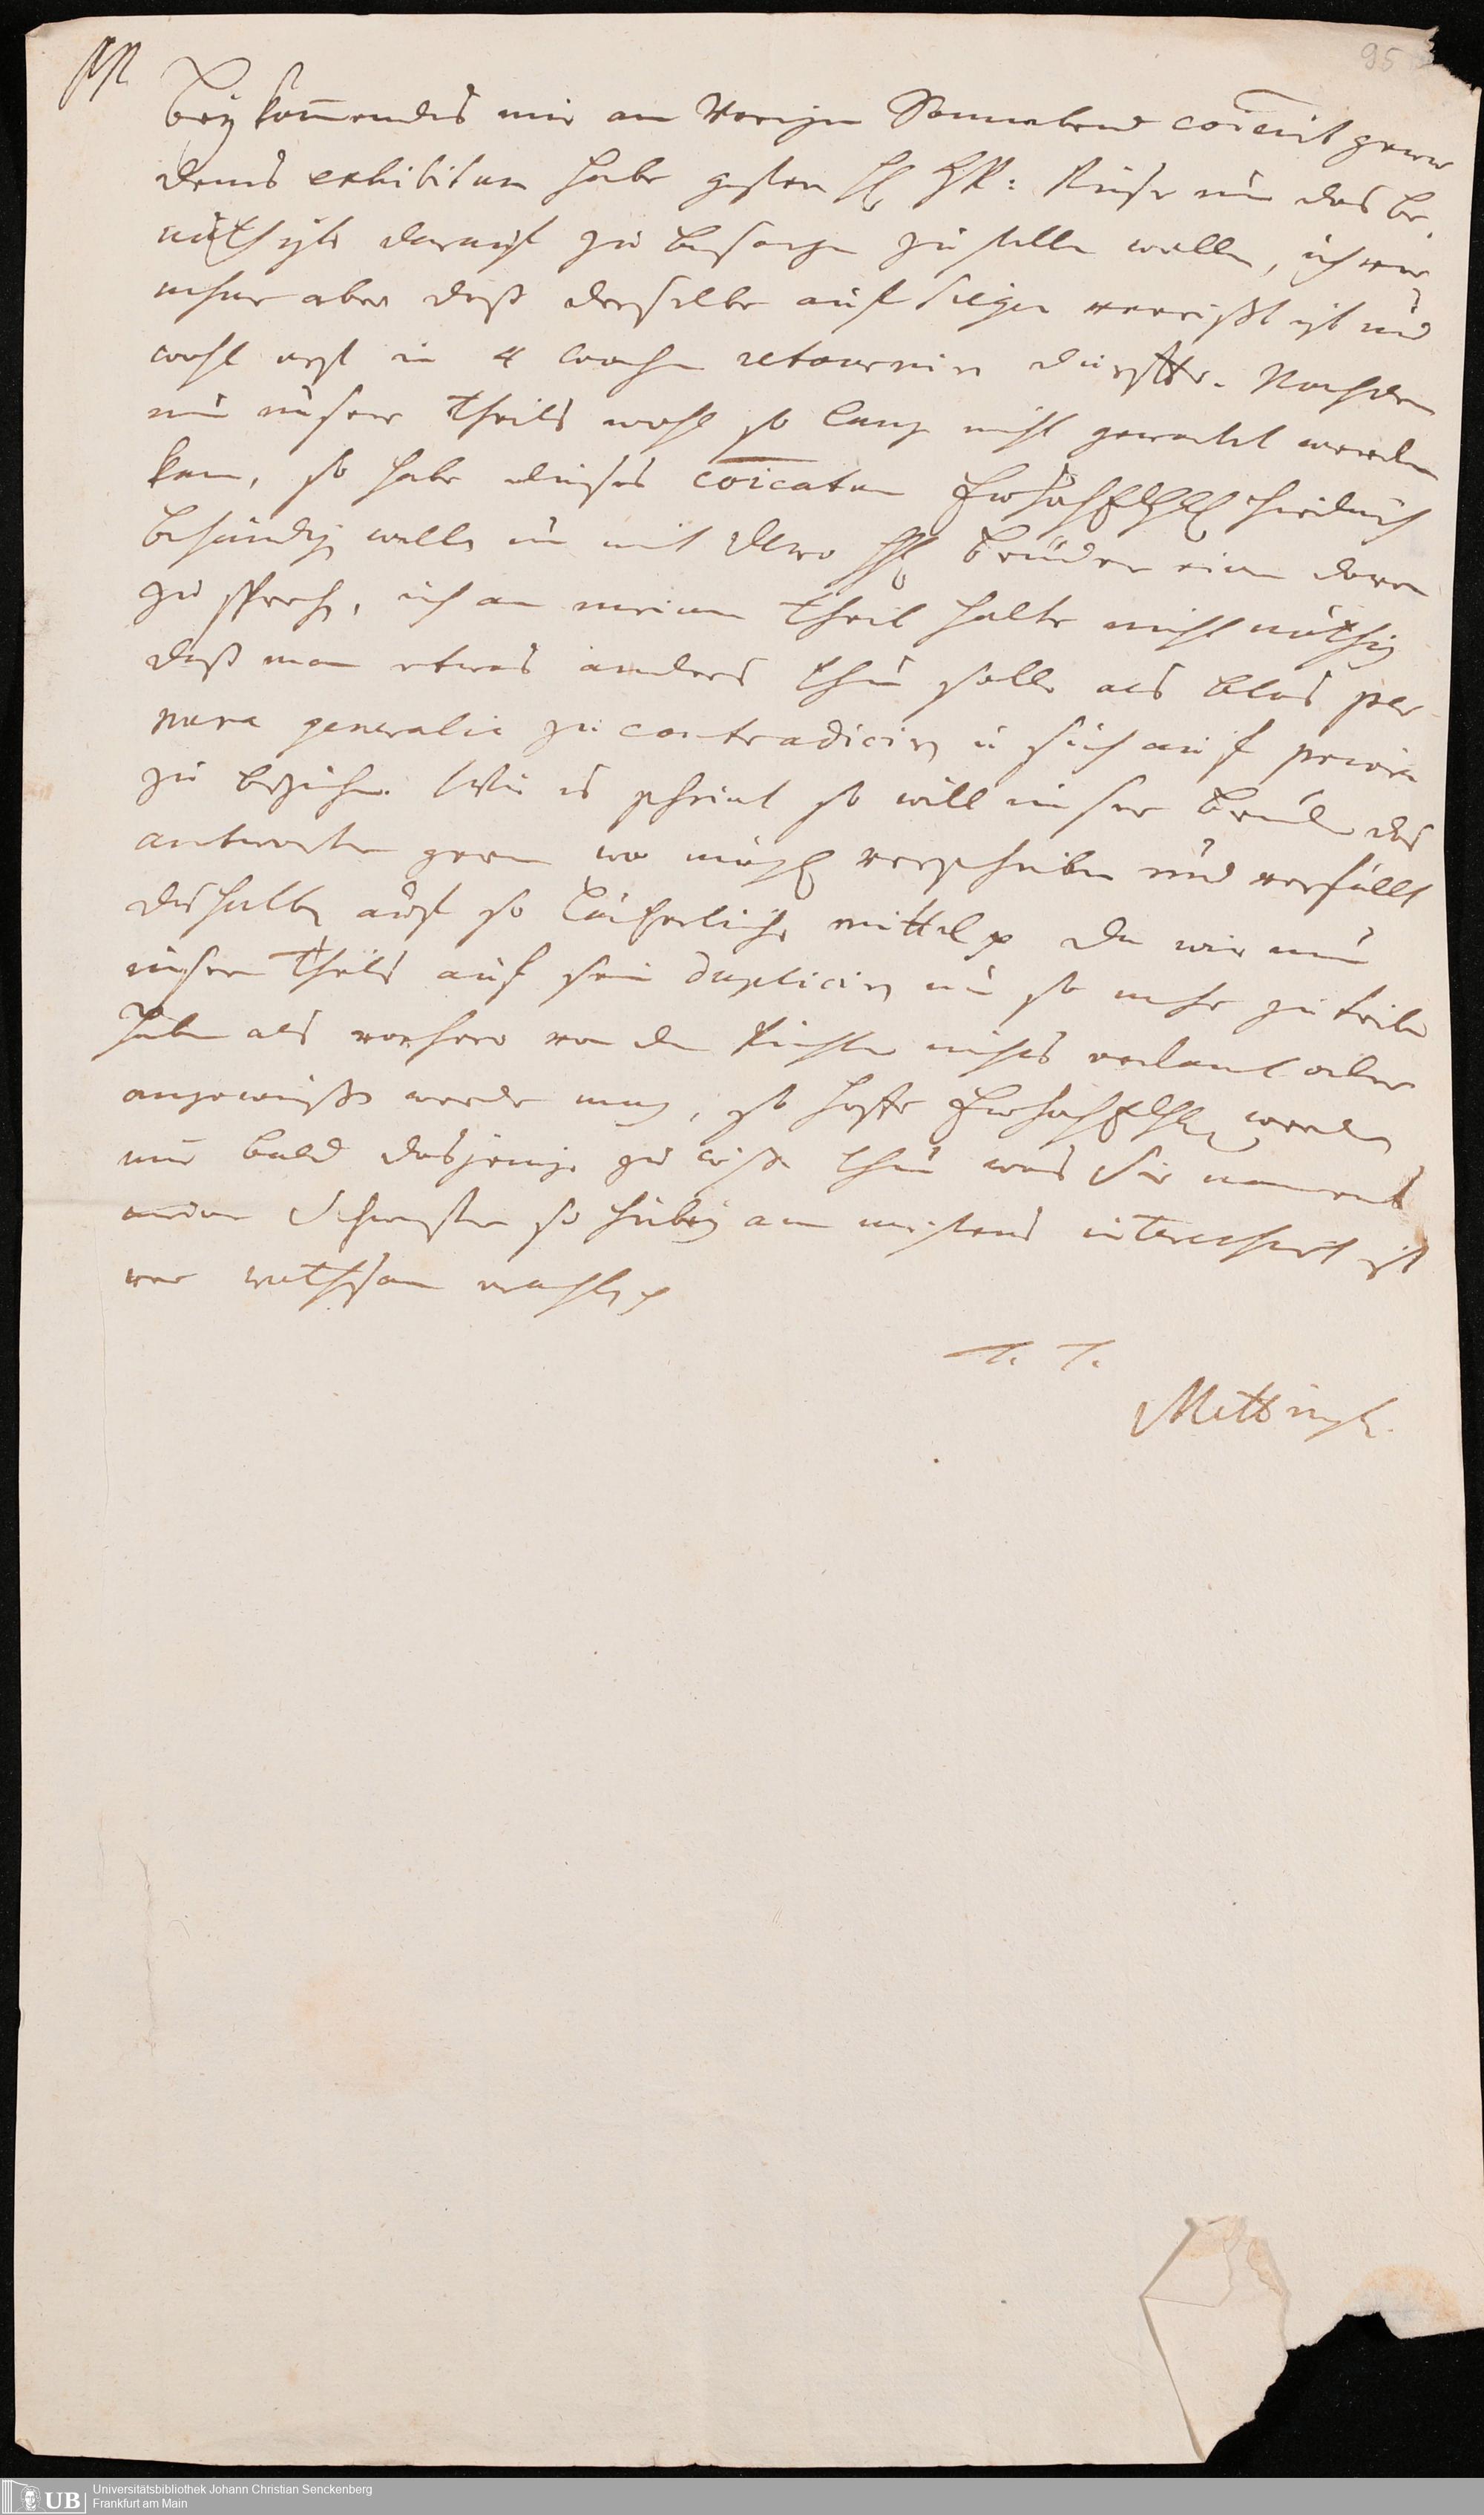 95
PP.
Beykom̄endes mir am Vorigen Sonnabend coīcirt gewor
denes exhibitum habe gestern H HR: Ruse um das be-
nöthigte darauf zu besorgen zustellen wollen, ich ver
nehme aber daß derselbe auf Siegen verreißt ist und
wohl erst in 4 Wochen retourniren dürffte. Nachdem
nun unser theils wohl so lang nicht gewartet werden
kan, so habe dieses coīcatum hierdurch
behändigen wollen um mit Dero H Bruder einen davon
zu sprechen, ich an meinem theil halte nicht nöthig
daß man etwas anders thun solle als blos per
mera generalia zu contradiciren u sich auf priora
zu beziehen. Wie es scheint so will unser Bruder das
antworten gern wo mögl verschieben und verfällt
deshalben auf so lächerliche mittel da wir nun
unsern theils auf sein dupliciren um so mehr zu treiben
haben als vorhero von dem Richter nichts erkant oder
angewießen werden mag, so hoffe werden
mir bald dasjenige zu wißen thun was Sie namens
meiner Schwester so hiebey am meistens interessirt ist
vor rathsam erachten
T. T.
Metting.
UB
Universitätsbibliothek Johann Christian Senckenberg
Frankfurt am Main